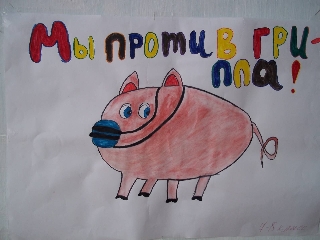 Мы против гри-
ппа!